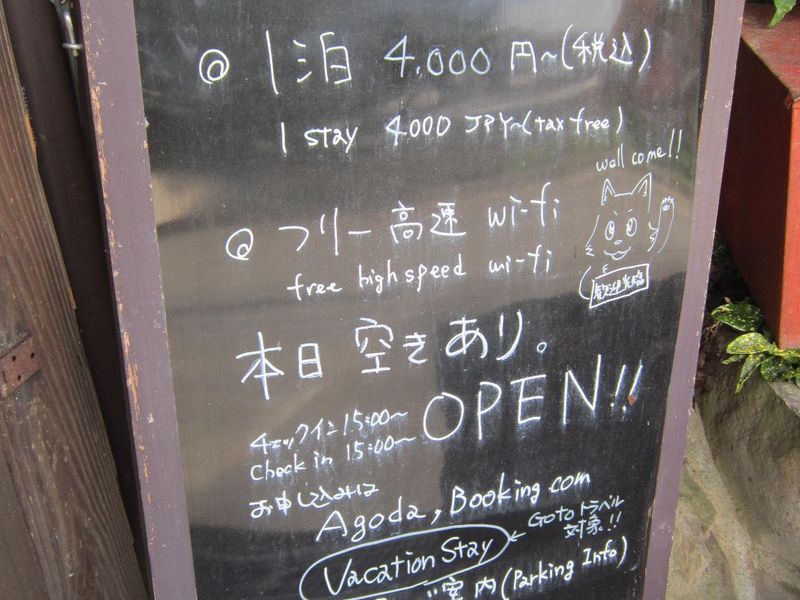 @ 1泊 4,000 円~(税込)
1 stay 4000 JPY~(tax free)
well come!!
@ フリー高速 wi-fi
free high speed wi-fi
歓迎光臨
本日 空きあり。
OPEN!!
チェックイン 15:00~
Check in 15:00~
お申し込みは
Agoda, Booking.com
Vacation Stay ← GOTOトラベル
対象!!
案内 (Parking Info)